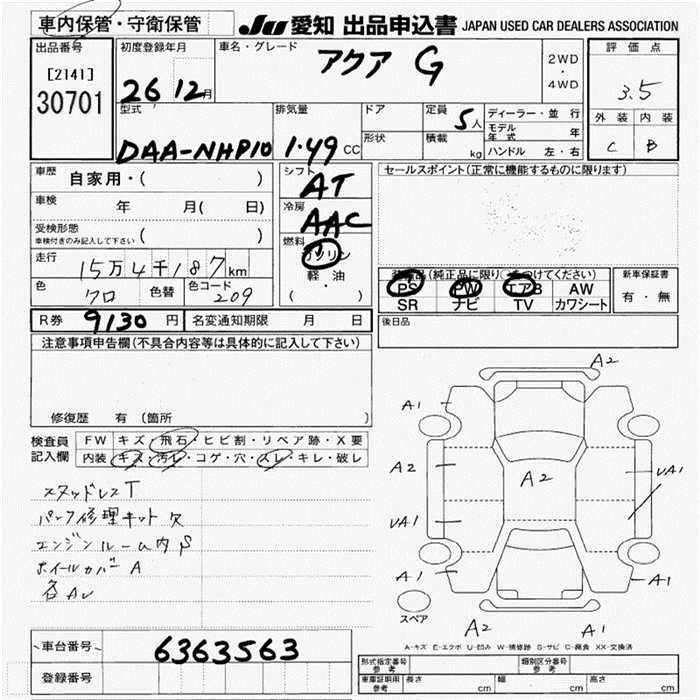 車内保管・守衛保管
JU 愛知 出品申込書 JAPAN USED CAR DEALERS ASSOCIATION
出品番号
[2141]
30701
初度登録年月
26 12月
車名・グレード
アクア G
2WD
・
4WD
評価点
3.5
外装 内装
C B
型式
DAA-NHP10
排気量
1.49 CC
ドア
形状
定員
5人
積載
kg
ディーラー・並行
モデル年式 年
ハンドル 左・右
車歴
自家用・( )
車検
年 月( 日)
受検形態
車検付きのみ記入して下さい ( )
走行
15万4千187km
色
クロ
色替
色コード
209
シフト
AT
冷房
AAC
燃料
ガソリン
軽・油
( ・ )
セールスポイント(正常に機能するものに限ります)
装備品(純正品に限り○をつけてください)
PS PW エアB AW
SR ナビ TV カワシート
新車保証書
有・無
後日品
R券 9130 円
名変通知期限 月 日
注意事項申告欄(不具合内容等は具体的に記入して下さい)
修復歴 有 (箇所
検査員
記入欄
FW キズ・飛石・ヒビ割・リペア跡・X要
内装 キズ・汚レ・コゲ・穴・スレ・キレ・破レ
スタッドレスT
パンク修理キット欠
エンジンルーム内S
ホイールカバーA
各AU
A2
A1
A2
A2
UA1
UA1
A1
A1
スペア
A2
A1
A-キズ E-エクボ U-凹み W-補修跡 S-サビ C-腐食 XX-交換済
車台番号
6363563
登録番号
形式指定番号
参考
類別区分番号
参考
車庫証明用
参考
長さ cm
幅 cm
高さ cm